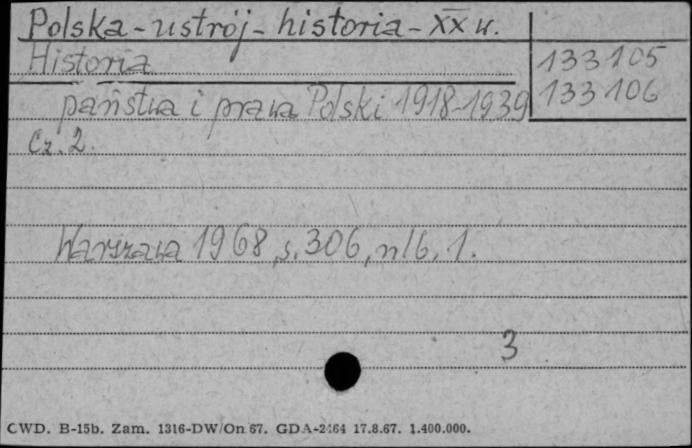 Polska - ustrój - historia - XX w.
Historia
133105
133106
państwa i prawa Polski 1918-1939
Cz. 2.
Warszawa 1968, s. 306, nlb. 1.
3
CWD. B-15b. Zam. 1316-DW/On 67. GDA-2464 17.8.67. 1.400.000.